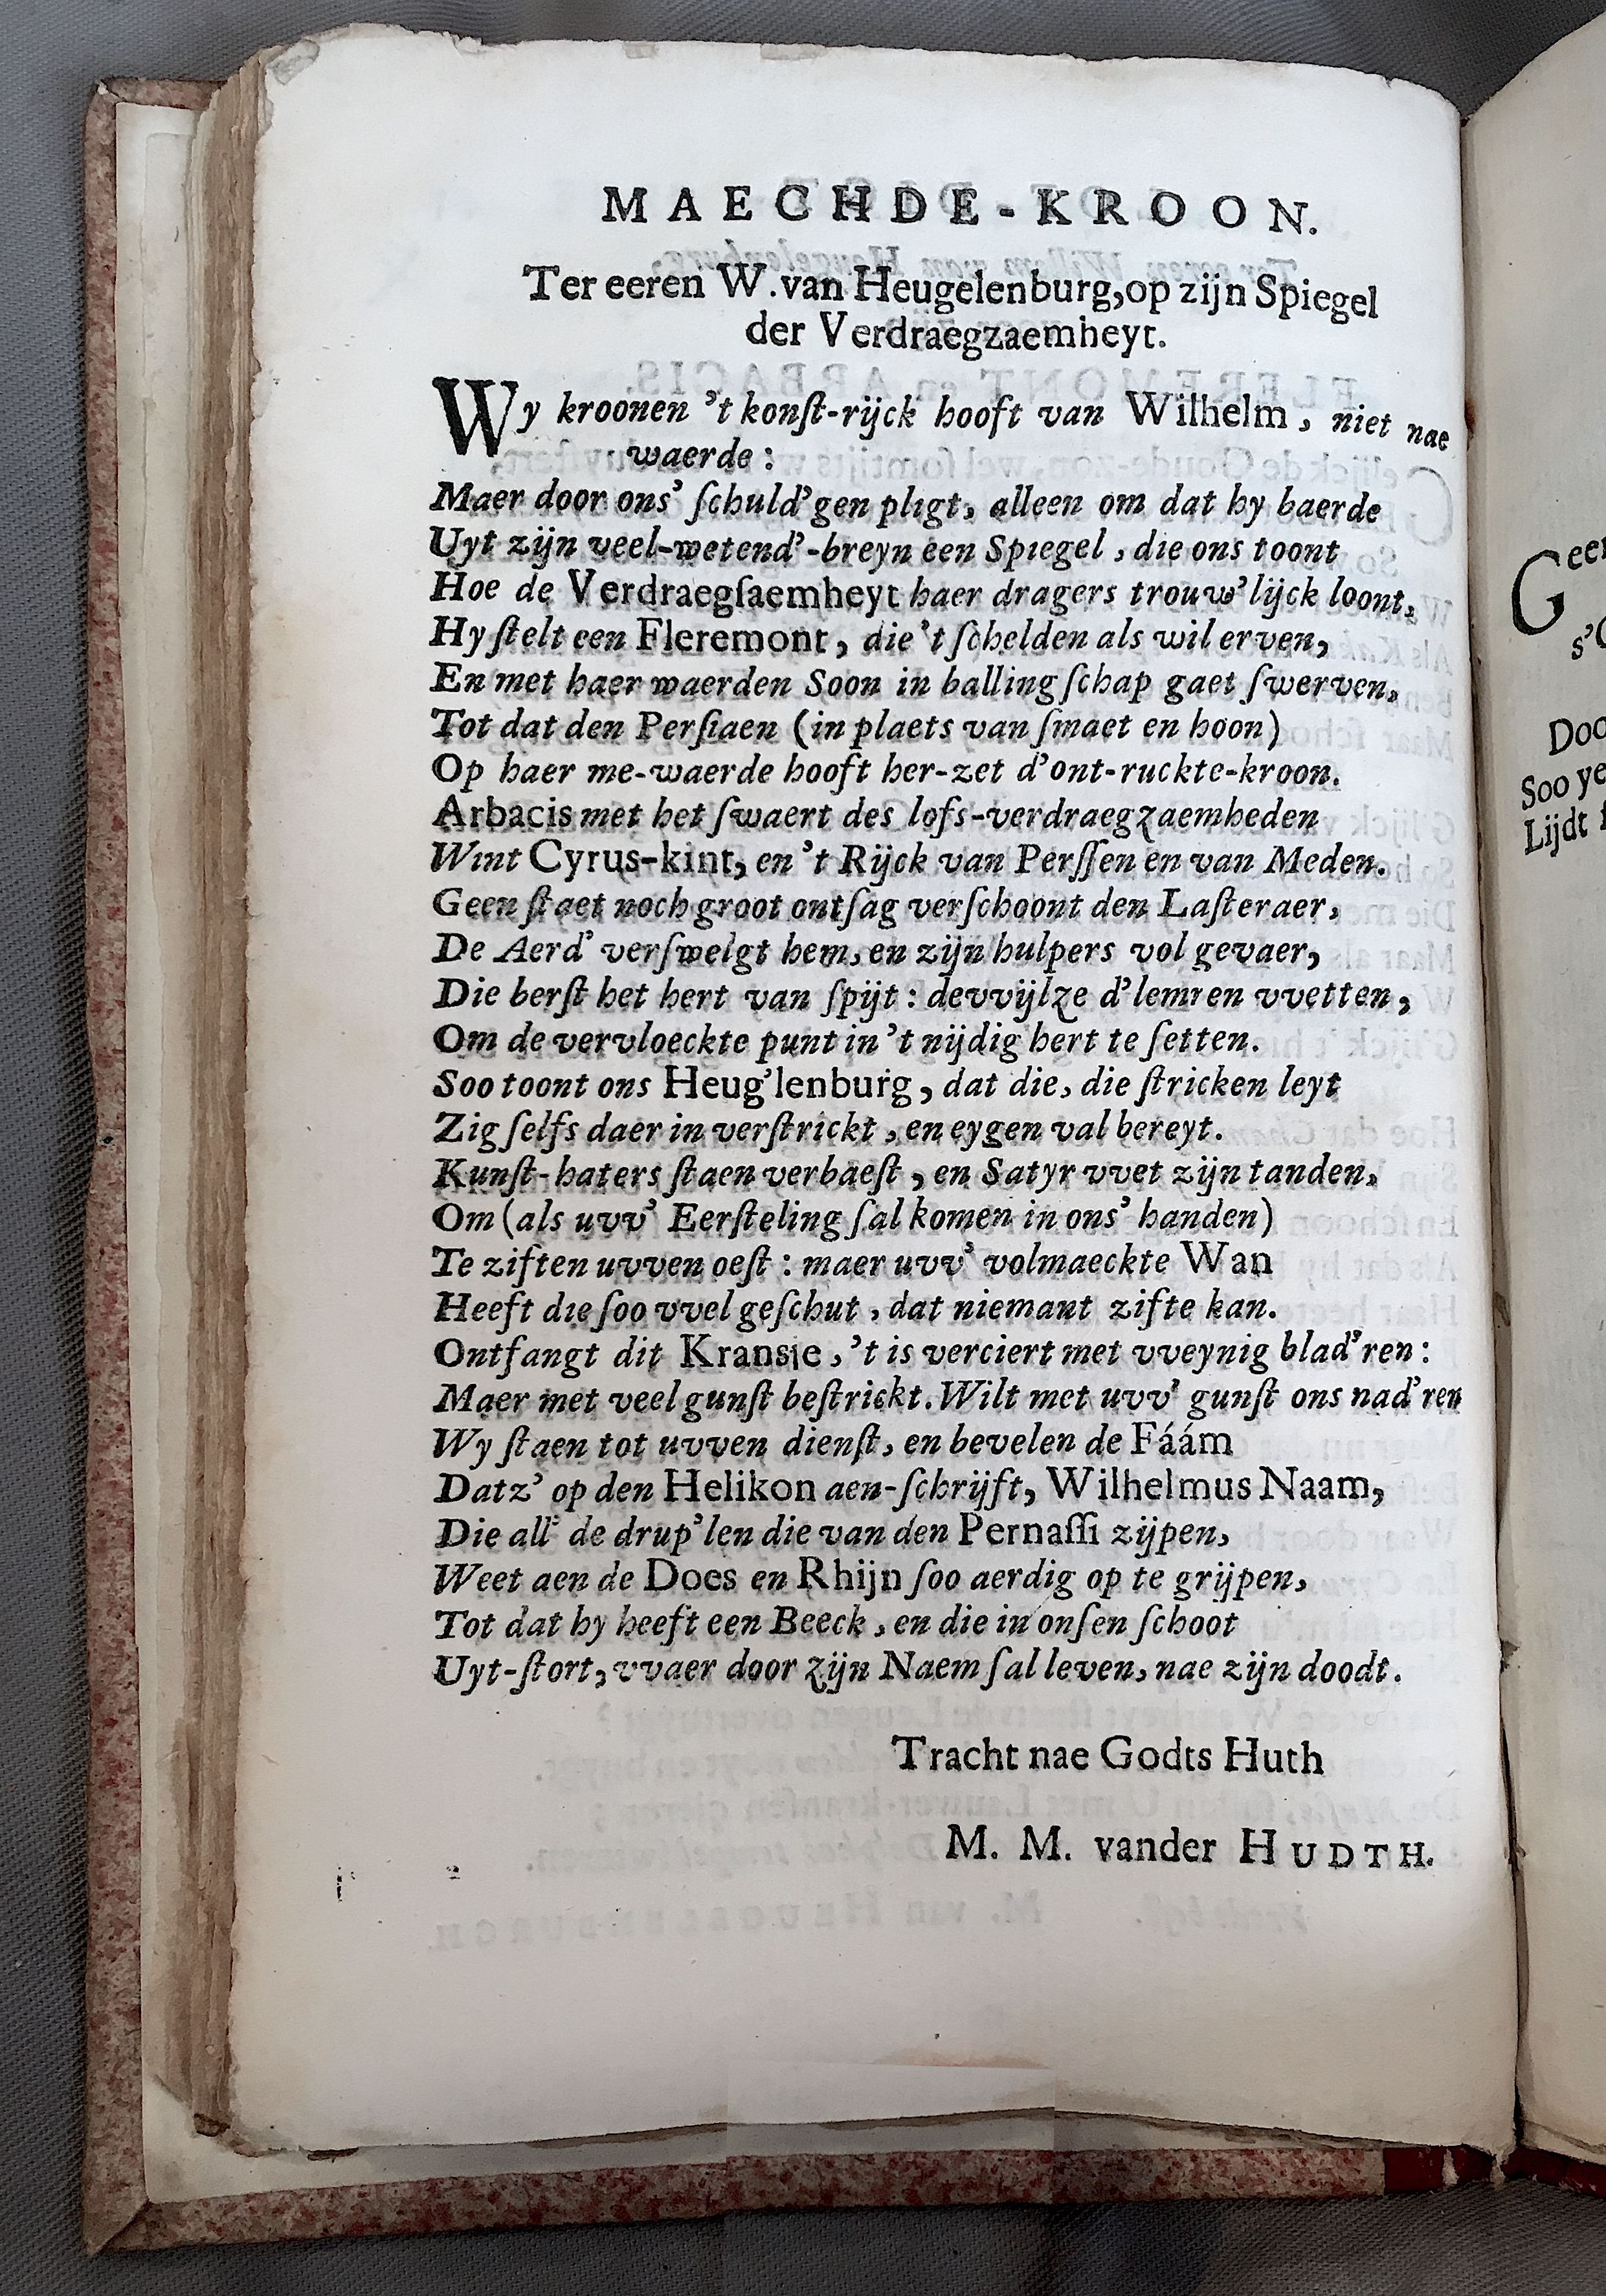 MAECHDE-KROON.
Ter eeren W.van Heugelenburg,op zijn Spiegel
der Verdraegzaemheyt.
Wy kroonen ’t konſt-rijck hooft van Wilhelm, niet nae
waerde:
Maer door ons’ ſchuld’gen pligt, alleen om dat hy baerde
Uyt zijn veel-wetend’-breyn een Spiegel, die ons toont
Hoe de Verdraegſaemheyt haer dragers trouw’lijck loont,
Hy ſtelt een Fleremont, die ’t ſchelden als wil erven,
En met haer waerden Soon in balling ſchap gaet ſwerven,
Tot dat den Perſiaen (in plaets van ſmaet en hoon)
Op haer me-waerde hooft her-zet d’ont-ruckte-kroon.
Arbacis met het ſwaert des lofs-verdraegzaemheden
Wint Cyrus-kint, en ’t Rijck van Perſſen en van Meden.
Geen ſtaet noch groot ontſag verſchoont den Laſteraer,
De Aerd’ verſwelgt hem, en zijn hulpers vol gevaer,
Die berſt het hert van ſpijt: devvijlze d’lemren vvetten,
Om de vervloeckte punt in ’t nijdig hert te ſetten.
Soo toont ons Heug’lenburg, dat die, die ſtricken leyt
Zig ſelfs daer in verſtrickt, en eygen val bereyt.
Kunſt-haters ſtaen verbaeſt, en Satyr vvet zijn tanden,
Om (als uvv’ Eerſteling ſal komen in ons’ handen)
Te ziften uvven oeſt: maer uvv’ volmaeckte Wan
Heeft die ſoo vvel geſchut, dat niemant zifte kan.
Ontfangt dit Kransje, ’t is verciert met vveynig blad’ren:
Maer met veel gunſt beſtrickt. Wilt met uvv’ gunſt ons nad’ren
Wy ſtaen tot uvven dienſt, en bevelen de Fáám
Datz’ op den Helikon aen-ſchrijft, Wilhelmus Naam,
Die all’ de drup’len die van den Pernaſſi zijpen,
Weet aen de Does en Rhijn ſoo aerdig op te grijpen,
Tot dat hy heeft een Beeck, en die in onſen ſchoot
Uyt-ſtort, vvaer door zijn Naem ſal leven, nae zijn doodt.
Tracht nae Godts Huth
M. M. vander HUDTH.
Geer
s’
Doo
Soo ye
Lijdt